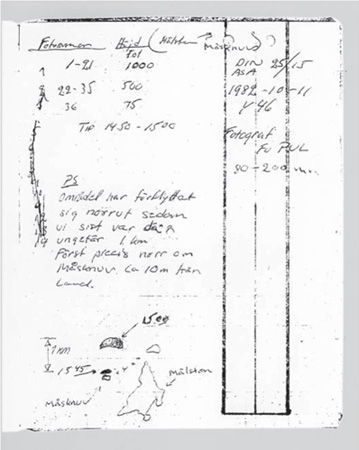 Höjd
fot
1-21 1000
22-35 500
36 75
Tid 1450-1500
DIN 25/15
ASA
1982-10-11
Y46
Fotograf
80-200 mm
PS
Området har förflyttat
sig norrut sedan
vi sist var där
ungefär 1 km
Först precis norr om
Måsknuv ca 10m från
land.
1500
1 km
1545
Målsten
Måsknuv